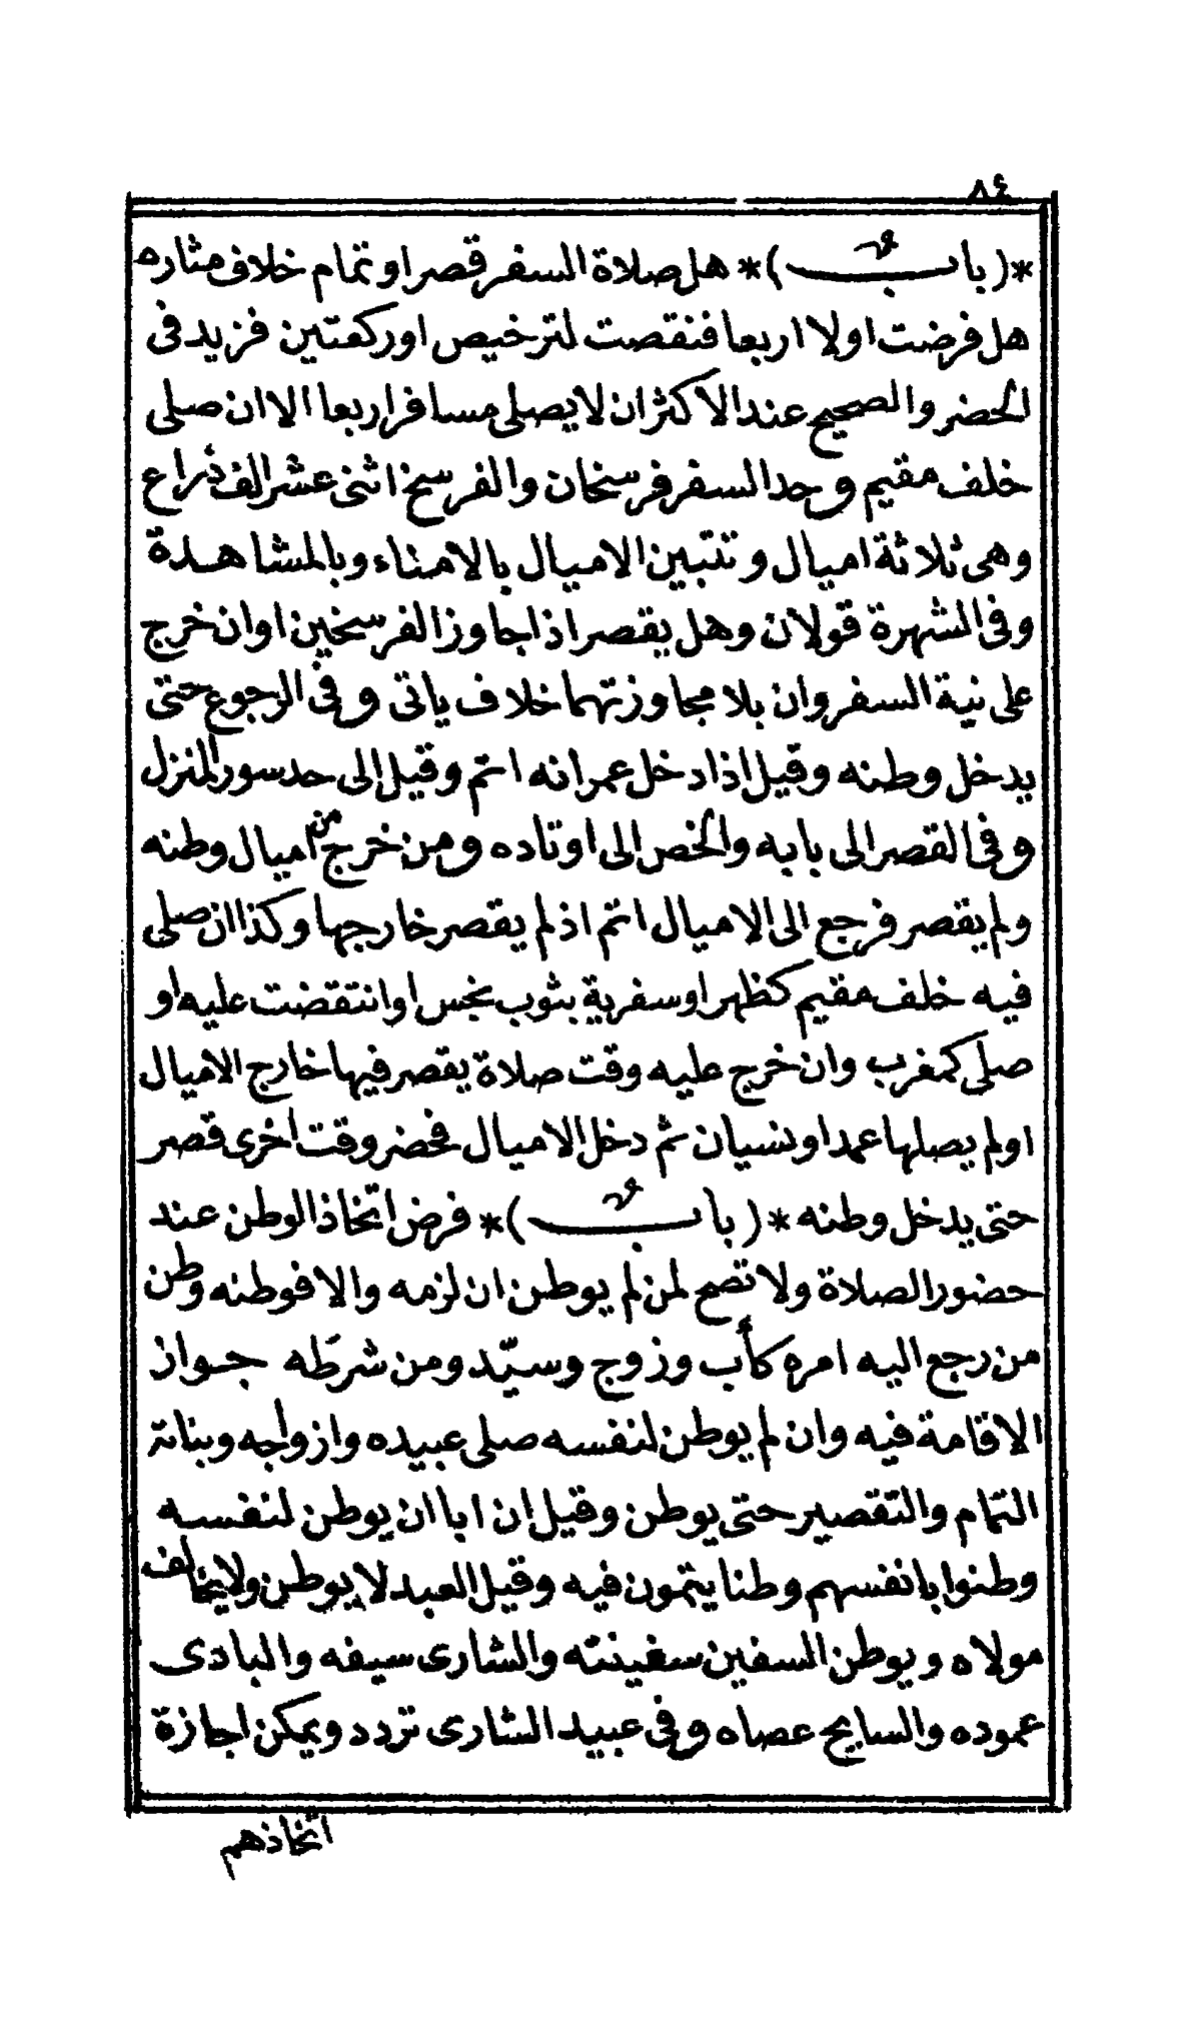 ٨٤
*(باب)* هل صلاة السفر قصر او تمام خلاف مثاره
هل فرضت اولا اربعا فنقصت لترخيص او ركعتين فزيد فى
الحضر والصحيح عند الاكثر ان لا يصلى مسافر اربعا الا ان صلى
خلف مقيم وحد السفر فرسخان والفرسخ اثنى عشر الف ذراع
وهى ثلاثة اميال وتتبين الاميال بالامناء وبالمشاهدة
وفى الشهرة قولان وهل يقصر اذا جاوز الفرسخين او ان خرج
على نية السفر وان بلا مجاوزتهما خلاف ياتى وفى الرجوع حتى
يدخل وطنه وقيل اذا دخل عمرانه اتم وقيل إلى حد سور المنزل
وفى القصر الى بابه والخص الى اوتاده ومن خرج من اميال وطنه
ولم يقصر فرجع الى الاميال اتم اذ لم يقصر خارجها وكذا ان صلى
فيه خلف مقيم كظهر او سفرية بثوب نجس او انتقضت عليه او
صلى كمغرب وان خرج عليه وقت صلاة يقصر فيها خارج الاميال
او لم يصلها عمدا او نسيان ثم دخل الاميال فحضر وقت اخرى قصر
حتى يدخل وطنه *(باب)* فرض اتخاذ الوطن عند
حضور الصلاة ولا تصح لمن لم يوطن ان لزمه والا فوطنه وطن
من رجع اليه امره كأب وزوج وسيّد ومن شرطه جواز
الاقامة فيه وان لم يوطن لنفسه صلى عبيده وازواجه وبناته
التمام والتقصير حتى يوطن وقيل ان ابا ان يوطن لنفسه
وطنوا بانفسهم وطنا يتمون فيه وقيل العبد لا يوطن ولا يخالف
مولاه ويوطن السفين سفينته والشارى سيفه والبادى
عموده والسايح عصاه وفى عبيد الشارى تردد ويمكن اجازة
اتخاذهم